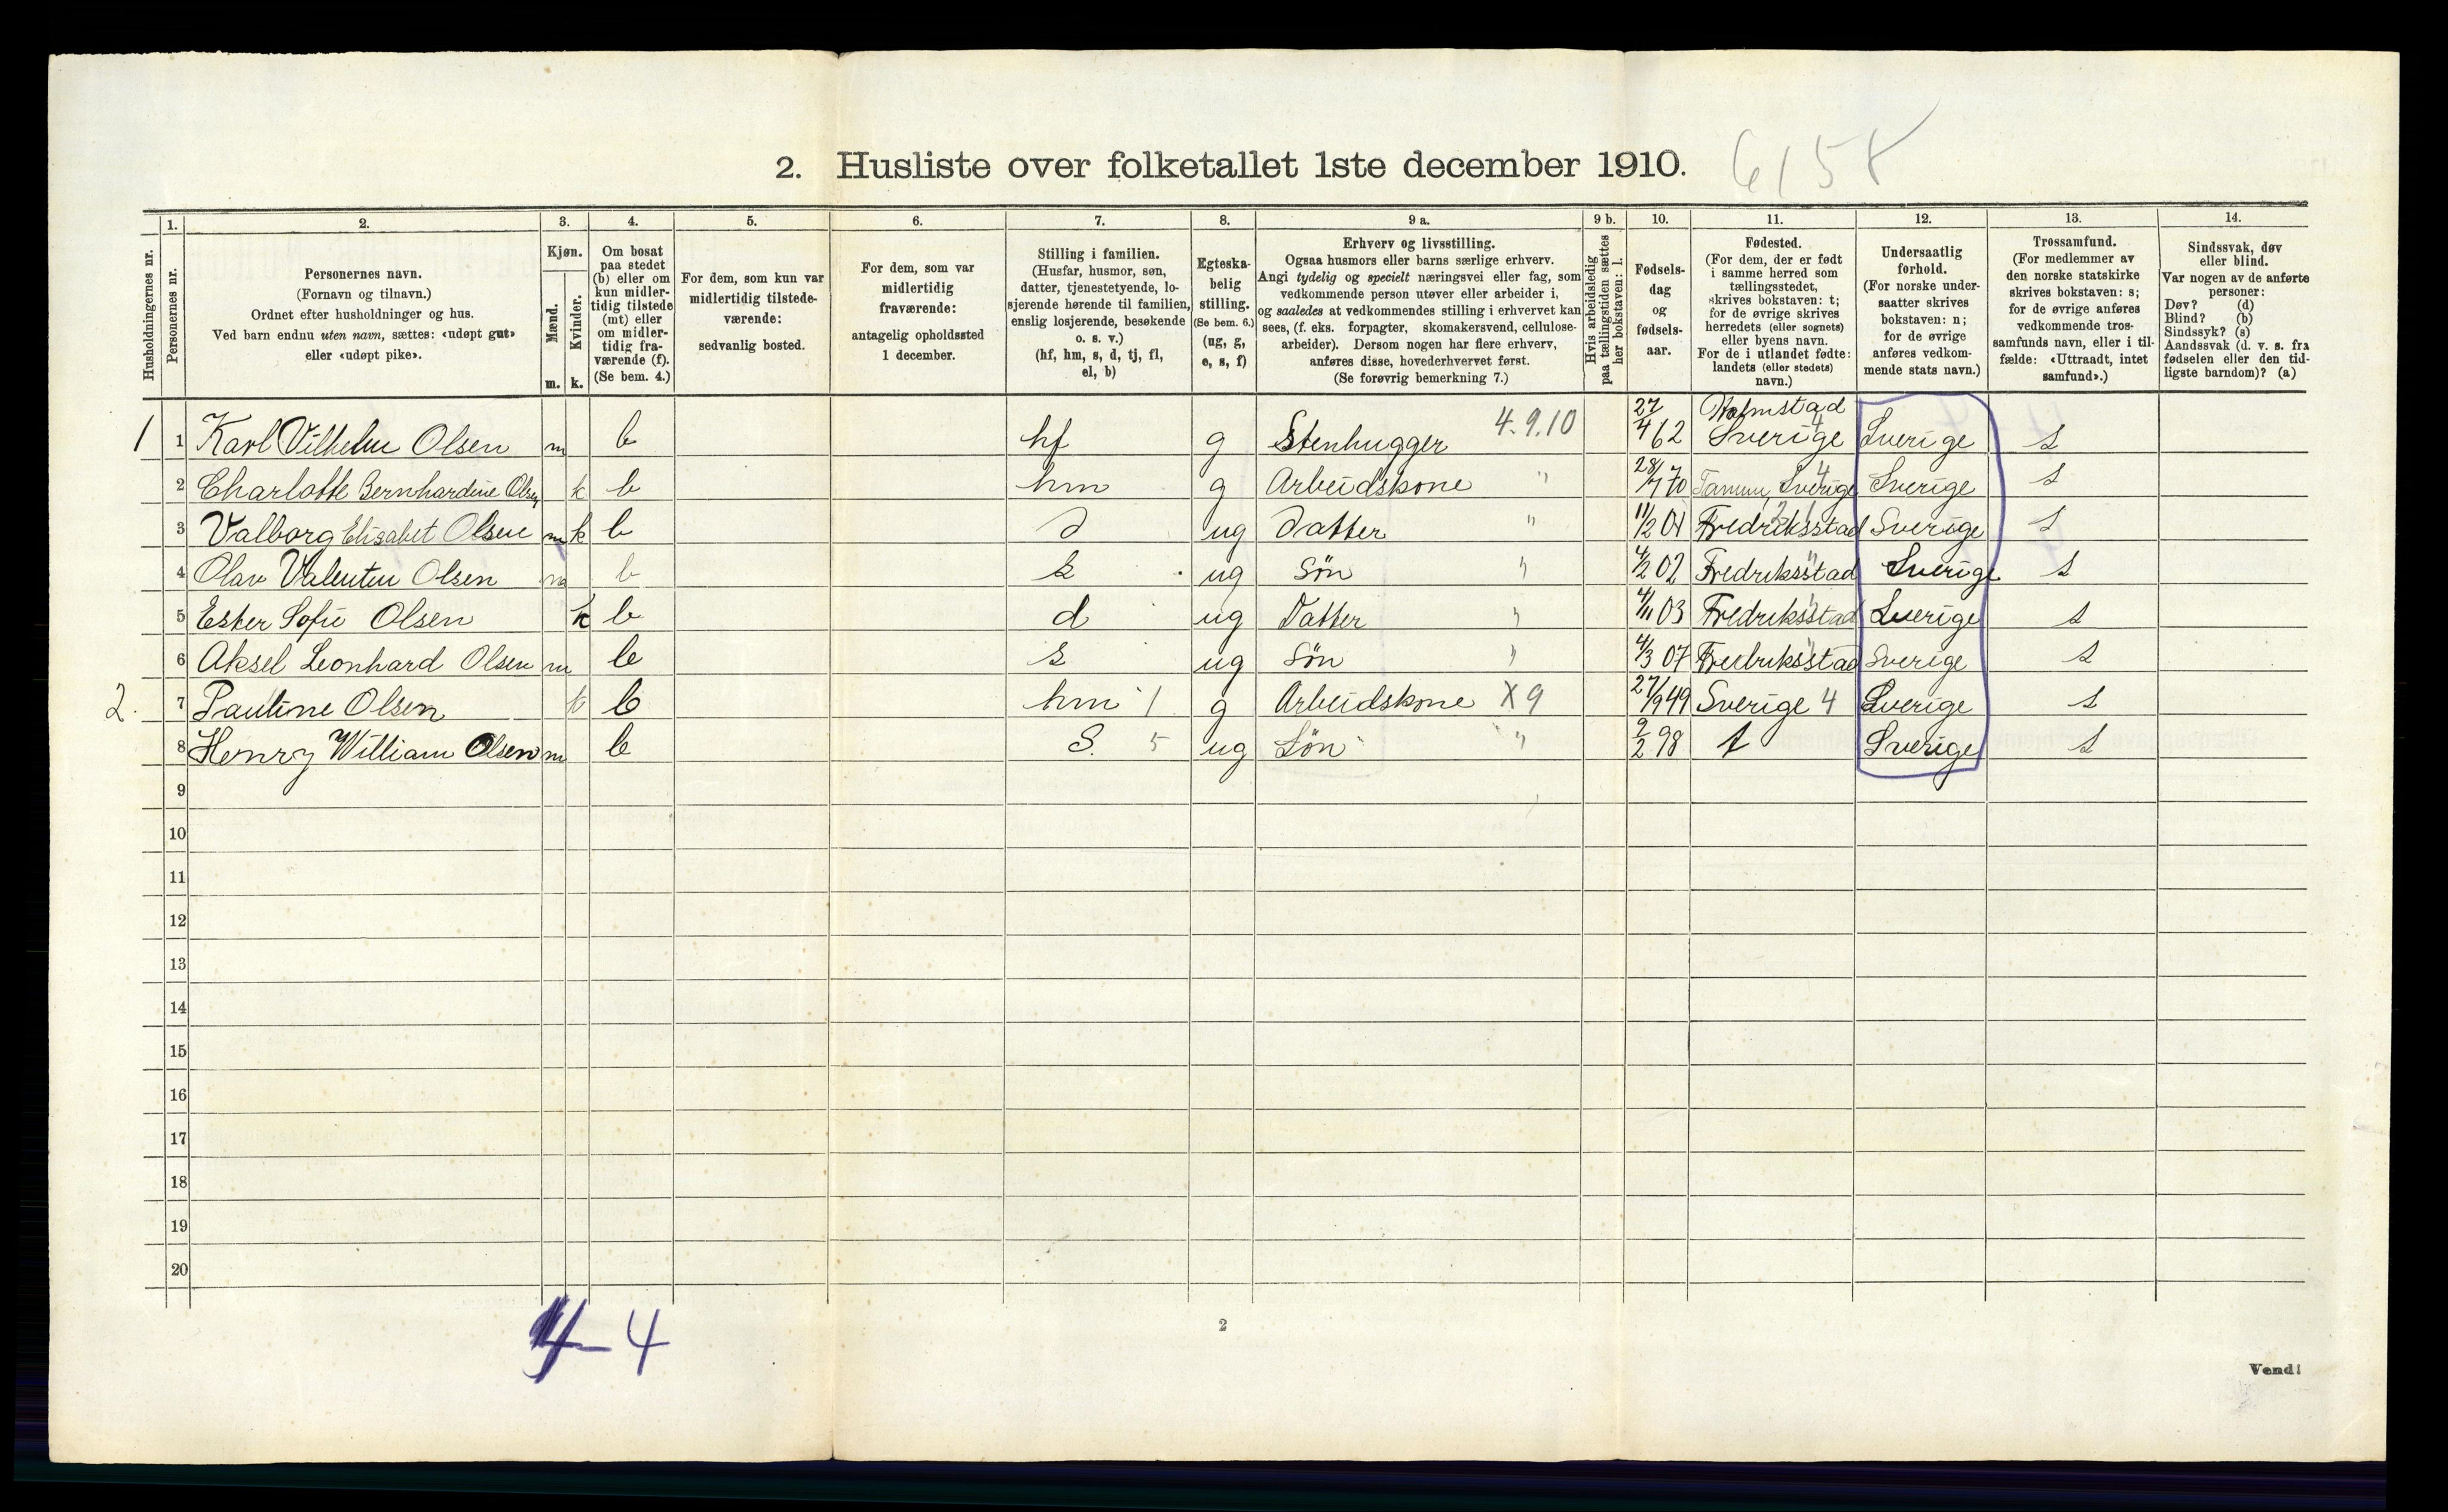 2. Husliste over folketallet 1ste december 1910. 6158
1. 2. 3. 4. 5. 6. 7. 8. 9 a. 9 b. 10. 11. 12. 13. 14.
Husholdningernes nr.
Personernes nr.
Personernes navn.
(Fornavn og tilnavn.)
Ordnet efter husholdninger og hus.
Ved barn endnu uten navn, sættes: «udøpt gut»
eller «udøpt pike».
Kjøn.
Mænd.
Kvinder.
m. k.
Om bosat
paa stedet
(b) eller om
kun midler-
tidig tilstede
(mt) eller
om midler-
tidig fra-
værende (f).
(Se bem. 4.)
For dem, som kun var
midlertidig tilstede-
værende:
sedvanlig bosted.
For dem, som var
midlertidig
fraværende:
antagelig opholdssted
1 december.
Stilling i familien.
(Husfar, husmor, søn,
datter, tjenestetyende, lo-
sjerende hørende til familien,
enslig losjerende, besøkende
o. s. v.)
(hf, hm, s, d, tj, fl,
el, b)
Egteska-
belig
stilling.
(Se bem. 6.)
(ug, g,
e, s, f)
Erhverv og livsstilling.
Ogsaa husmors eller barns særlige erhverv.
Angi tydelig og specielt næringsvei eller fag, som
vedkommende person utøver eller arbeider i,
og saaledes at vedkommendes stilling i erhvervet kan
sees, (f. eks. forpagter, skomakersvend, cellulose-
arbeider). Dersom nogen har flere erhverv,
anføres disse, hovederhvervet først.
(Se forøvrig bemerkning 7.)
Hvis arbeidsledig
paa tællingstiden sættes
her bokstaven: l.
Fødsels-
dag
og
fødsels-
aar.
Fødested.
(For dem, der er født
i samme herred som
tællingsstedet,
skrives bokstaven: t;
for de øvrige skrives
herredets (eller sognets)
eller byens navn.
For de i utlandet fødte:
landets (eller stedets)
navn.)
Undersaatlig
forhold.
(For norske under-
saatter skrives
bokstaven: n;
for de øvrige
anføres vedkom-
mende stats navn.)
Trossamfund.
(For medlemmer av
den norske statskirke
skrives bokstaven: s;
for de øvrige anføres
vedkommende tros-
samfunds navn, eller i til-
fælde: «Uttraadt, intet
samfund».)
Sindssvak, døv
eller blind.
Var nogen av de anførte
personer:
Døv? (d)
Blind? (b)
Sindssyk? (s)
Aandssvak (d. v. s. fra
fødselen eller den tid-
ligste barndom)? (a)
1 1 Karl Vilhelm Olsen m b hf g Stenhugger 4.9.10 27/4 62 Halmstad 4 Sverige Sverige s
2 Charlotte Bernhardine Olsen k b hm g Arbeidskone " 28/7 70 Tanum, Sverige 4 Sverige s
3 Valborg Elisabet Olsen m k b d ug Datter " 11/2 01 Fredriksstad Sverige s
4 Olav Valentin Olsen m b s ug Søn " 4/2 02 Fredriksstad " Sverige s
5 Ester Sofie Olsen k b d ug Datter " 4/11 03 Fredriksstad " Sverige s
6 Aksel Leonhard Olsen m b s ug Søn " 4/3 07 Fredriksstad " Sverige s
2. 7 Pauline Olsen k b hm 1 g Arbeidskone X 9 27/9 49 Sverige 4 Sverige s
8 Henry William Olsen m b S. 5 ug Søn " 9/2 98 t Sverige s
9
10
11
12
13
14
15
16
17
18
19
20
4-4
2
Vend!